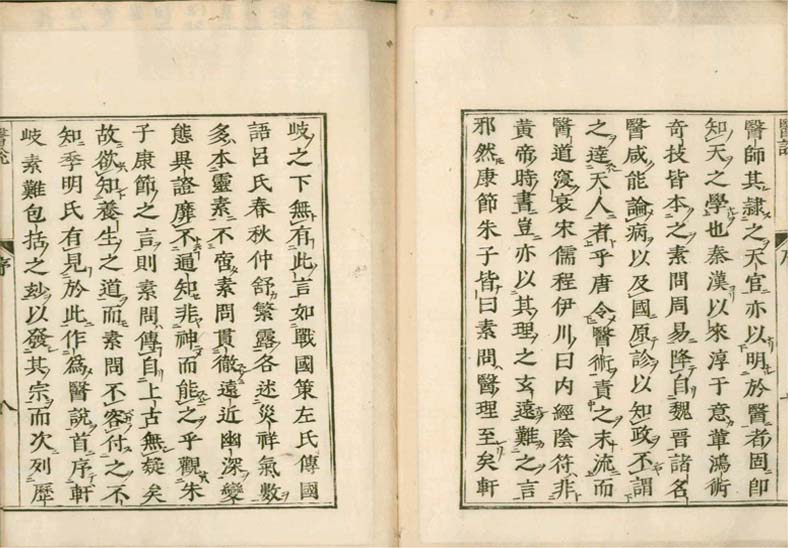 醫說
醫師其隷之天官亦以明於醫者固卽
知天之學也秦漢以來淳于意輩鴻術
奇技皆本之素問周易降自魏晉諸名
醫咸能論病以及國原診以知政不謂
之達天人者乎唐令醫術責之末流而
醫道寖衰宋儒程伊川曰內經陰符非
黃帝時書豈亦以其理之玄遠難之言
邪然康節朱子皆曰素問醫理至矣軒
岐之下無有此言如戰國策左氏傳國
語呂氏春秋仲舒繁露各述災祥氣數
多本靈素不啻素問貫徹遠近幽深變
態異證靡不通知非神而能之乎觀朱
子康節之言則素問傳自上古無疑矣
故欲知養生之道而素問不容付之不
知季明氏有見於此作爲醫說首序軒
岐素難包括之玅以發其宗而次列歷
醫說
序
八